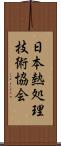 日本熱処理
技術協会